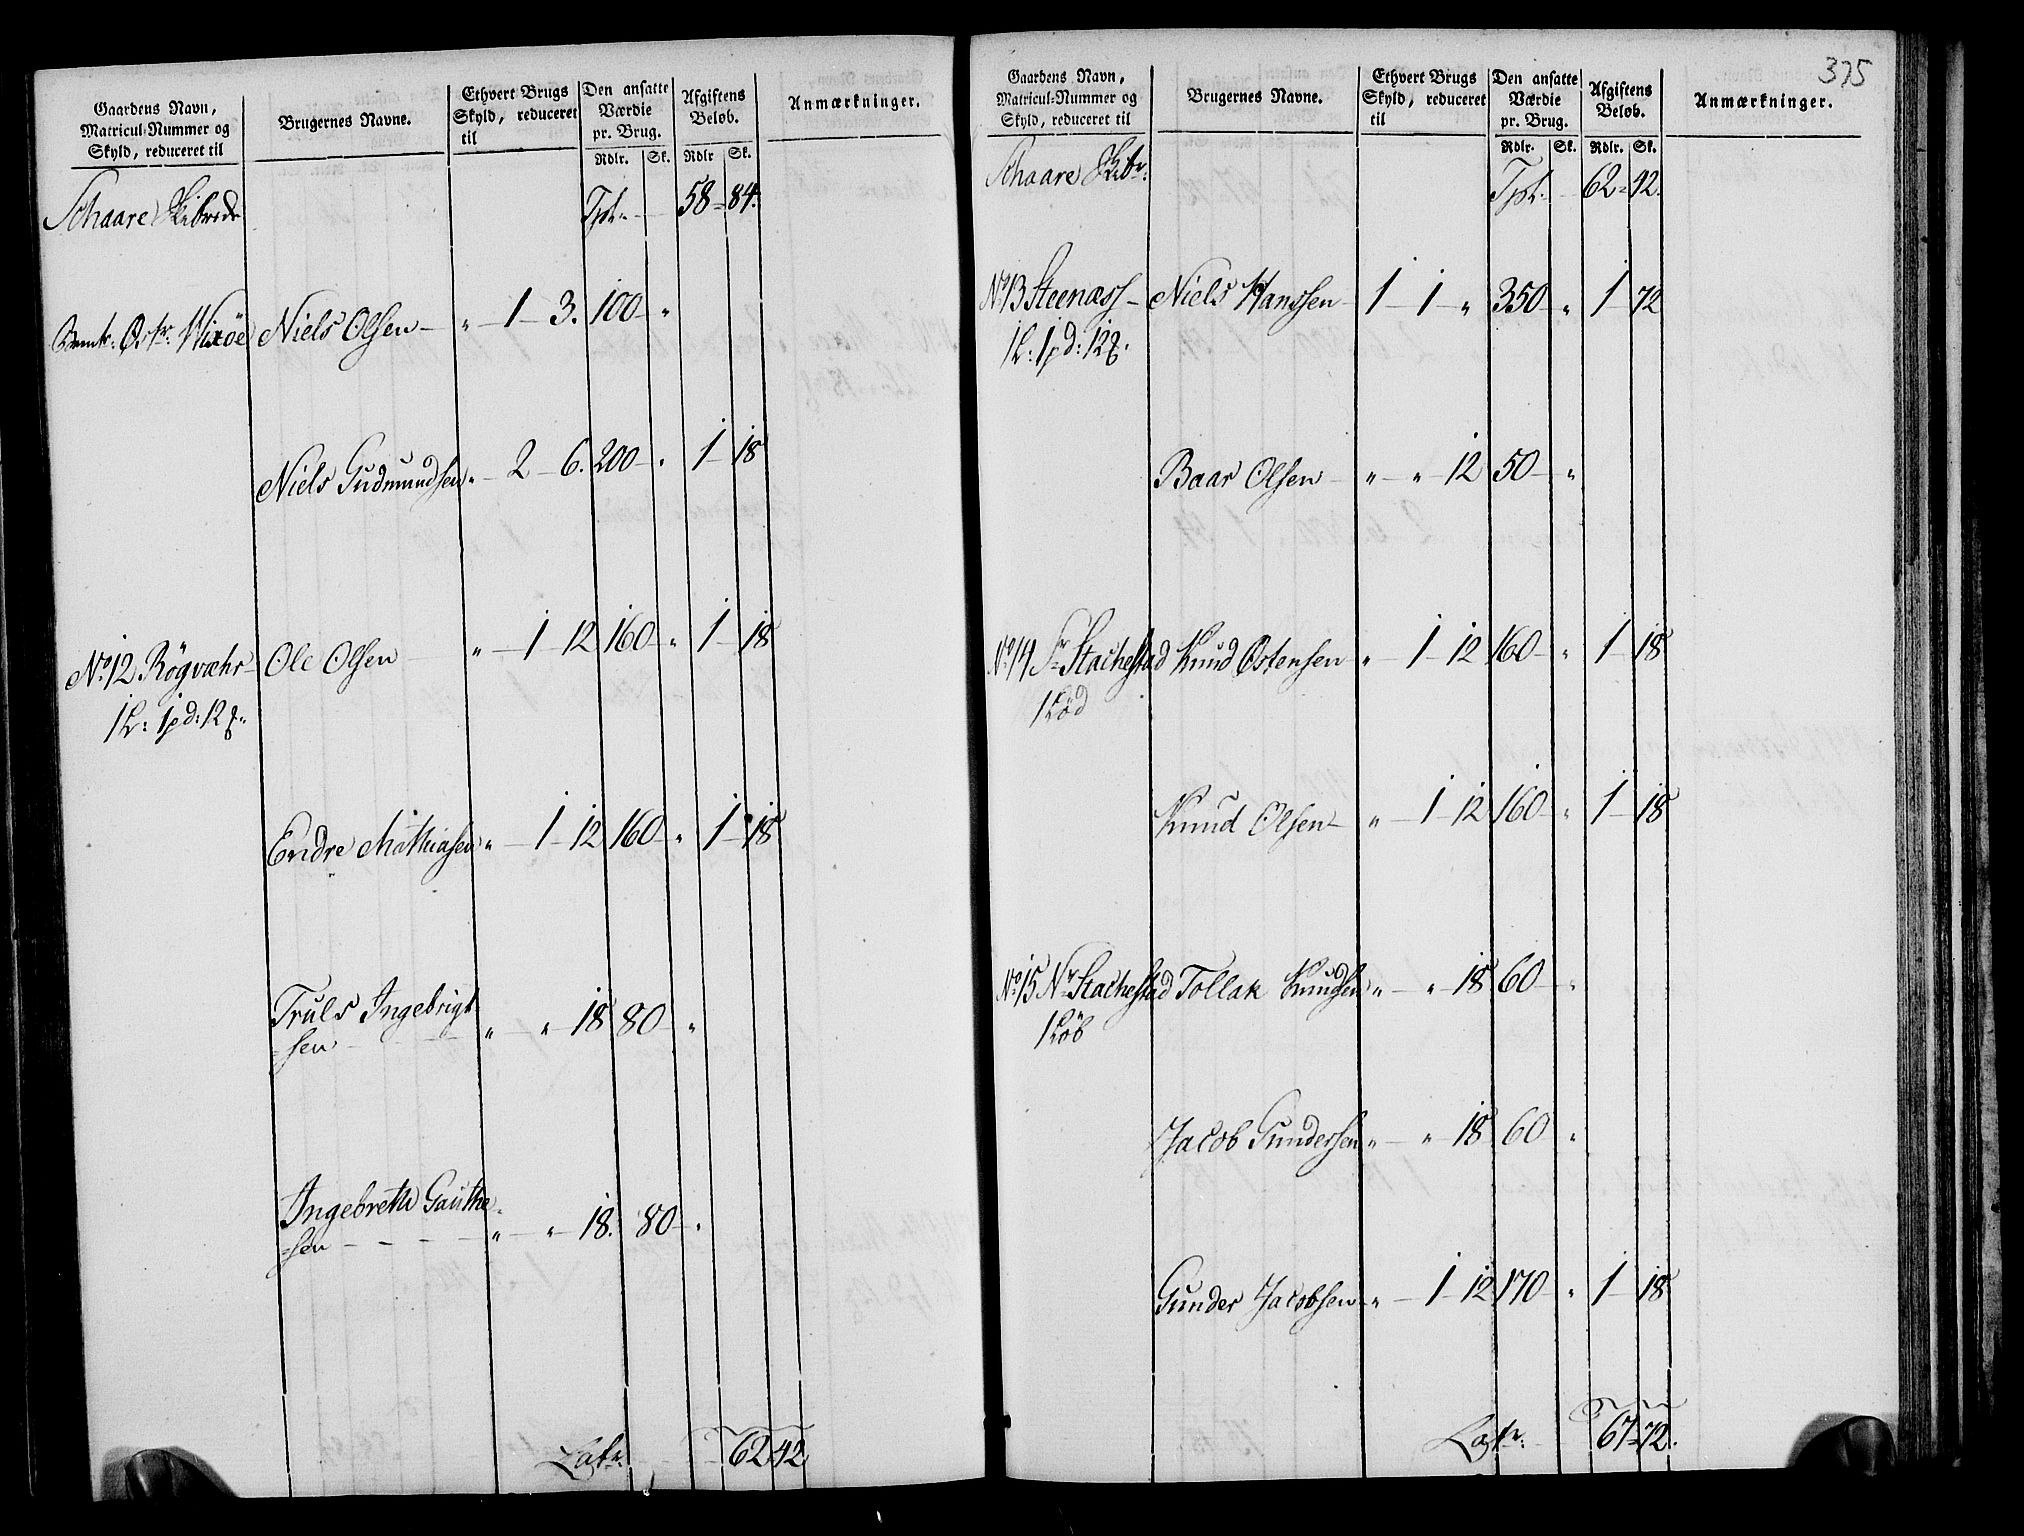 Gaardens Navn,
Matricul-Nummer og
Skyld, reduceret til
Brugernes Navne.
Ethvert Brugs
Skyld, reduceret
til
Den ansatte
Værdie
pr. Brug.
Rdlr. Sk.
Afgiftens
Beløb.
Rdlr Sk.
Anmærkninger.
Schaare Skibrede Tpt. 58 = 84.
Østr: Wixöe Niels Olsen — „ — 1 — 3. 100 — „
Niels Gudmundsen „ — 2 — 6. 200 — „ 1 — 18
No. 12 Rögvæhr — Ole Olsen „ — 1 — 12 160 — „ 1 — 18
1 L: 1 pd: 12
Endre Mathiasen „ — 1 — 12 160 — „ 1 — 18
Truls Ingebrigt
=sen „ — „ 18 80 — „
Ingebreth Gauthe
=sen — — — — „ — „ — 18. 80 — „
Latr. 62 42
375
Gaardens Navn,
Matricul-Nummer og
Skyld, reduceret til
Brugernes Navne.
Ethvert Brugs
Skyld, reduceret
til
Den ansatte
Værdie
pr. Brug.
Rdlr. Sk.
Afgiftens
Beløb.
Rdlr. Sk.
Anmærkninger.
Schaare Skibr: Tpt. 62 = 42.
No. 13 Steenæss — Niels Hanssen — 1 — 1 — „ 350 — „ 1 — 72
1 L: 1 pd: 12
Baar Olsen — „ — „ — 12 50 — „
No. 14 Sr. Stachestad Knud Østensen „ — 1 — 12 160 — „ 1 — 18
Knud Olsen — „ — 1 — 12 160 — „ 1 — 18
No. 15 Nr. Stachestad Tollak Knudsen „ — „ 18 60 — „
Jacob Gundersen „ — „ 18 60 — „
Gunder Jacobsen „ — 1 — 12 170 — „ 1 — 18
Latr: 67 = 72.